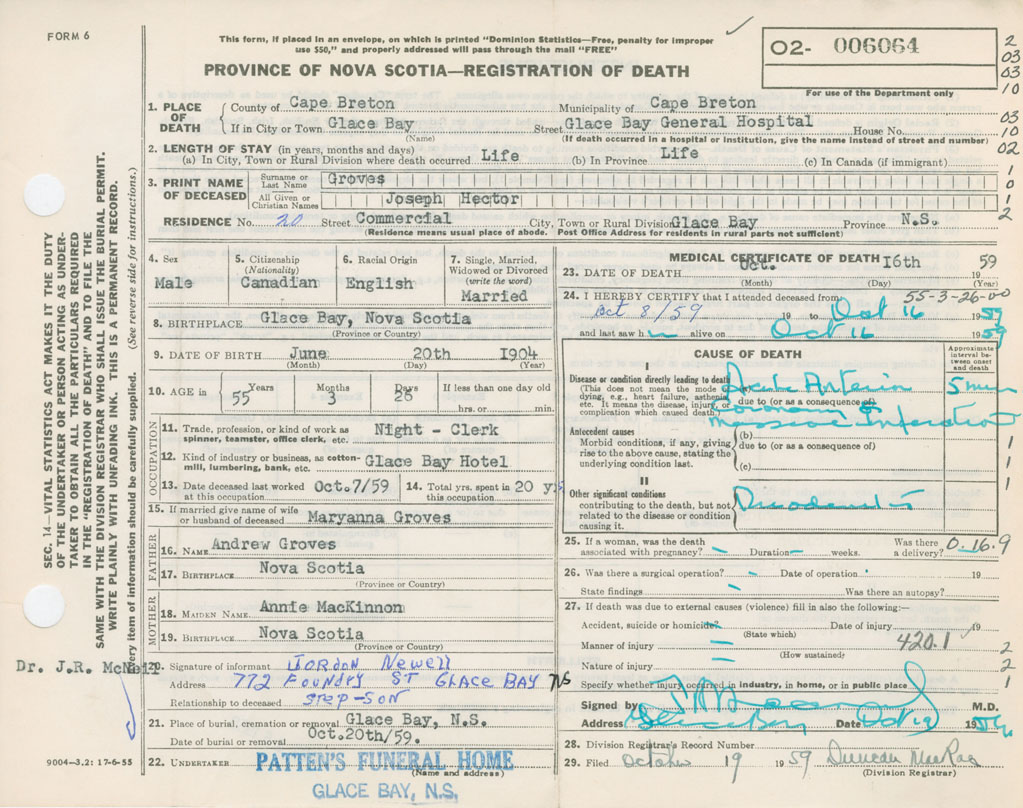 FORM 6
This form, if placed in an envelope, on which is printed "Dominion Statistics—Free, penalty for improper
use $50," and properly addressed will pass through the mail "FREE"
PROVINCE OF NOVA SCOTIA—REGISTRATION OF DEATH
02- 006064
For use of the Department only
2
03
03
10
03
10
02
1
0
1
2
1. PLACE OF DEATH
County of Cape Breton Municipality of Cape Breton
If in City or Town Glace Bay Street Glace Bay General Hospital House No.
(Name) (If death occurred in a hospital or institution, give the name instead of street and number)
2. LENGTH OF STAY (in years, months and days)
(a) In City, Town or Rural Division where death occurred Life (b) In Province Life (c) In Canada (if immigrant)
3. PRINT NAME OF DECEASED
Surname or Last Name Groves
All Given or Christian Names Joseph Hector
RESIDENCE No. 20 Street Commercial City, Town or Rural Division Glace Bay Province N.S.
(Residence means usual place of abode. Post Office Address for residents in rural parts not sufficient)
4. Sex
Male
5. Citizenship
(Nationality)
Canadian
6. Racial Origin
English
7. Single, Married,
Widowed or Divorced
(write the word)
Married
8. BIRTHPLACE Glace Bay, Nova Scotia
(Province or Country)
9. DATE OF BIRTH June 20th 1904
(Month) (Day) (Year)
10. AGE in Years Months Days If less than one day old
55 3 26 hrs. or min.
OCCUPATION
11. Trade, profession, or kind of work as
spinner, teamster, office clerk, etc. Night - Clerk
12. Kind of industry or business, as cotton-
mill, lumbering, bank, etc. Glace Bay Hotel
13. Date deceased last worked
at this occupation Oct.7/59
14. Total yrs. spent in
this occupation 20 yrs
15. If married give name of wife
or husband of deceased Maryanna Groves
FATHER
16. NAME Andrew Groves
17. BIRTHPLACE Nova Scotia
(Province or Country)
MOTHER
18. MAIDEN NAME. Annie MacKinnon
19. BIRTHPLACE Nova Scotia
(Province or Country)
Dr. J.R. McNeil
20. Signature of informant Jordon Newell
Address 772 Foundry St Glace Bay NS
Relationship to deceased Step-Son
21. Place of burial, cremation or removal Glace Bay, N.S.
Date of burial or removal Oct.20th/59.
22. UNDERTAKER PATTEN'S FUNERAL HOME
(Name and address)
GLACE BAY, N.S.
9004—3.2: 17-6-55
SEC. 14—VITAL STATISTICS ACT MAKES IT THE DUTY
OF THE UNDERTAKER OR PERSON ACTING AS UNDER-
TAKER TO OBTAIN ALL THE PARTICULARS REQUIRED
IN THE "REGISTRATION OF DEATH" AND TO FILE THE
SAME WITH THE DIVISION REGISTRAR WHO SHALL ISSUE THE BURIAL PERMIT.
WRITE PLAINLY WITH UNFADING INK. THIS IS A PERMANENT RECORD.
Every item of information should be carefully supplied. (See reverse side for instructions.)
MEDICAL CERTIFICATE OF DEATH
23. DATE OF DEATH Oct. 16th 19 59
(Month) (Day) (Year)
55-3-26-00
24. I HEREBY CERTIFY that I attended deceased from
Oct 8/59 19 to Oct 16 1959
and last saw him alive on Oct 16 1959
CAUSE OF DEATH
Approximate
interval be-
tween onset
and death
I
Disease or condition directly leading to death
(This does not mean the mode of
dying, e.g., heart failure, asthenia,
etc. It means the disease, injury, or
complication which caused death.)
due to (or as a consequence of)
Massive Infarction
Antecedent causes
Morbid conditions, if any, giving
rise to the above cause, stating the
underlying condition last.
(b)
due to (or as a consequence of)
(c)
1
1
1
II
Other significant conditions
contributing to the death, but not
related to the disease or condition
causing it.
25. If a woman, was the death
associated with pregnancy? — Duration — weeks. Was there
a delivery?
0.16.9
26. Was there a surgical operation? — Date of operation 19
State findings — Was there an autopsy?
27. If death was due to external causes (violence) fill in also the following:—
Accident, suicide or homicide? Date of injury 19
(State which)
420.1
Manner of injury — 2
(How sustained)
Nature of injury — 2
Specify whether injury occurred in industry, in home, or in public place 1
Signed by M.D.
Address Glace Bay Date Oct 19 1959
28. Division Registrar's Record Number
29. Filed October 19 1959 Duncan MacRae
(Division Registrar)